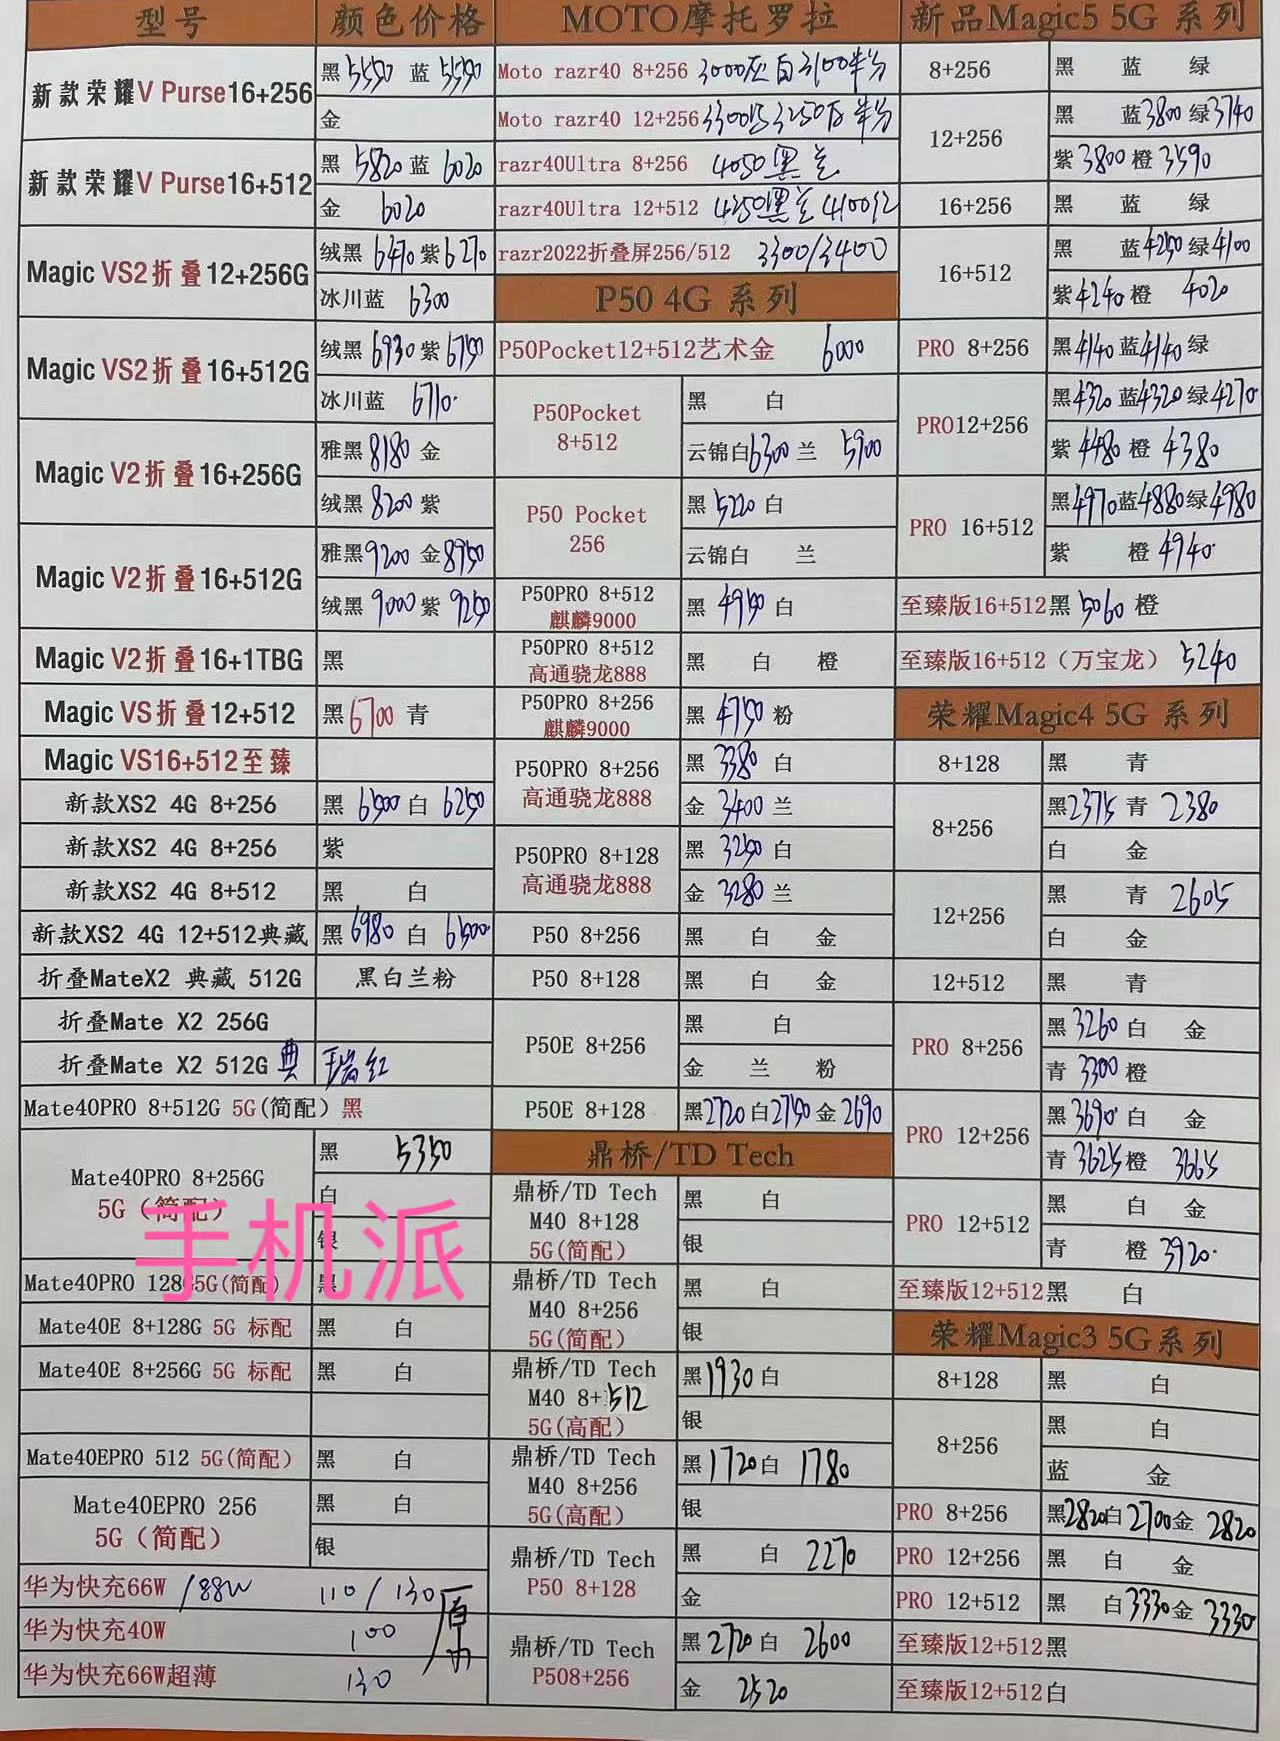 型号 颜色价格
新款荣耀V Purse16+256 黑 5550 蓝 5550
金
新款荣耀V Purse16+512 黑 5820 蓝 6020
金 6020
Magic VS2折叠12+256G 绒黑 6470 紫 6270
冰川蓝 6300
Magic VS2折叠16+512G 绒黑 6930 紫 6750
冰川蓝 6710
Magic V2折叠16+256G 雅黑 8180 金
绒黑 8200 紫
Magic V2折叠16+512G 雅黑 9200 金 8950
绒黑 9000 紫 9250
Magic V2折叠16+1TBG 黑
Magic VS折叠12+512 黑 6700 青
Magic VS16+512至臻
新款XS2 4G 8+256 黑 6500 白 6250
新款XS2 4G 8+256 紫
新款XS2 4G 8+512 黑 白
新款XS2 4G 12+512典藏 黑 6980 白 6500
折叠MateX2 典藏 512G 黑白兰粉
折叠Mate X2 256G
折叠Mate X2 512G 典 瑞红
Mate40PRO 8+512G 5G(简配) 黑
Mate40PRO 8+256G 5G(简配) 黑 5350
白
银
手机派
Mate40PRO 128G5G(简配) 黑
Mate40E 8+128G 5G 标配 黑 白
Mate40E 8+256G 5G 标配 黑 白
Mate40EPRO 512 5G(简配) 黑 白
Mate40EPRO 256 5G(简配) 黑 白
银
华为快充66W /88W 110/130 原
华为快充40W 100
华为快充66W超薄 130
MOTO摩托罗拉
Moto razr40 8+256 3000灰 白3100半
Moto razr40 12+256 3300 3250 半
razr40Ultra 8+256 4050黑兰
razr40Ultra 12+512 4250黑兰 4100红
razr2022折叠屏256/512 3300/3400
P50 4G 系列
P50Pocket12+512艺术金 6000
P50Pocket 8+512 黑 白
云锦白 6300 兰 5900
P50 Pocket 256 黑 5220 白
云锦白 兰
P50PRO 8+512 麒麟9000 黑 4950 白
P50PRO 8+512 高通骁龙888 黑 白 橙
P50PRO 8+256 麒麟9000 黑 4750 粉
P50PRO 8+256 高通骁龙888 黑 3380 白
金 3400 兰
P50PRO 8+128 高通骁龙888 黑 3250 白
金 3280 兰
P50 8+256 黑 白 金
P50 8+128 黑 白 金
P50E 8+256 黑 白
金 兰 粉
P50E 8+128 黑 2720 白 2750 金 2690
鼎桥/TD Tech
鼎桥/TD Tech M40 8+128 5G(简配) 黑 白
银
鼎桥/TD Tech M40 8+256 5G(简配) 黑 白
银
鼎桥/TD Tech M40 8+512 5G(高配) 黑 1930 白
银
鼎桥/TD Tech M40 8+256 5G(高配) 黑 1720 白 1780
银
鼎桥/TD Tech P50 8+128 黑 白 2270
金
鼎桥/TD Tech P508+256 黑 2720 白 2600
金 2520
新品Magic5 5G 系列
8+256 黑 蓝 绿
12+256 黑 蓝 3800 绿 3740
紫 3800 橙 3590
16+256 黑 蓝 绿
16+512 黑 蓝 4250 绿 4100
紫 4240 橙 4020
PRO 8+256 黑 4140 蓝 4140 绿
PRO12+256 黑 4320 蓝 4320 绿 4270
紫 4480 橙 4380
PRO 16+512 黑 4970 蓝 4880 绿 4980
紫 橙 4940
至臻版16+512 黑 5060 橙
至臻版16+512 (万宝龙) 5240
荣耀Magic4 5G 系列
8+128 黑 青
8+256 黑 2375 青 2380
白 金
12+256 黑 青 2605
白 金
12+512 黑 青
PRO 8+256 黑 3260 白 金
青 3300 橙
PRO 12+256 黑 3690 白 金
青 3625 橙 3665
PRO 12+512 黑 白 金
青 橙 3920
至臻版12+512 黑 白
荣耀Magic3 5G系列
8+128 黑 白
8+256 黑 白
蓝 金
PRO 8+256 黑 2820 白 2700 金 2820
PRO 12+256 黑 白 金
PRO 12+512 黑 白 3330 金 3330
至臻版12+512黑
至臻版12+512白